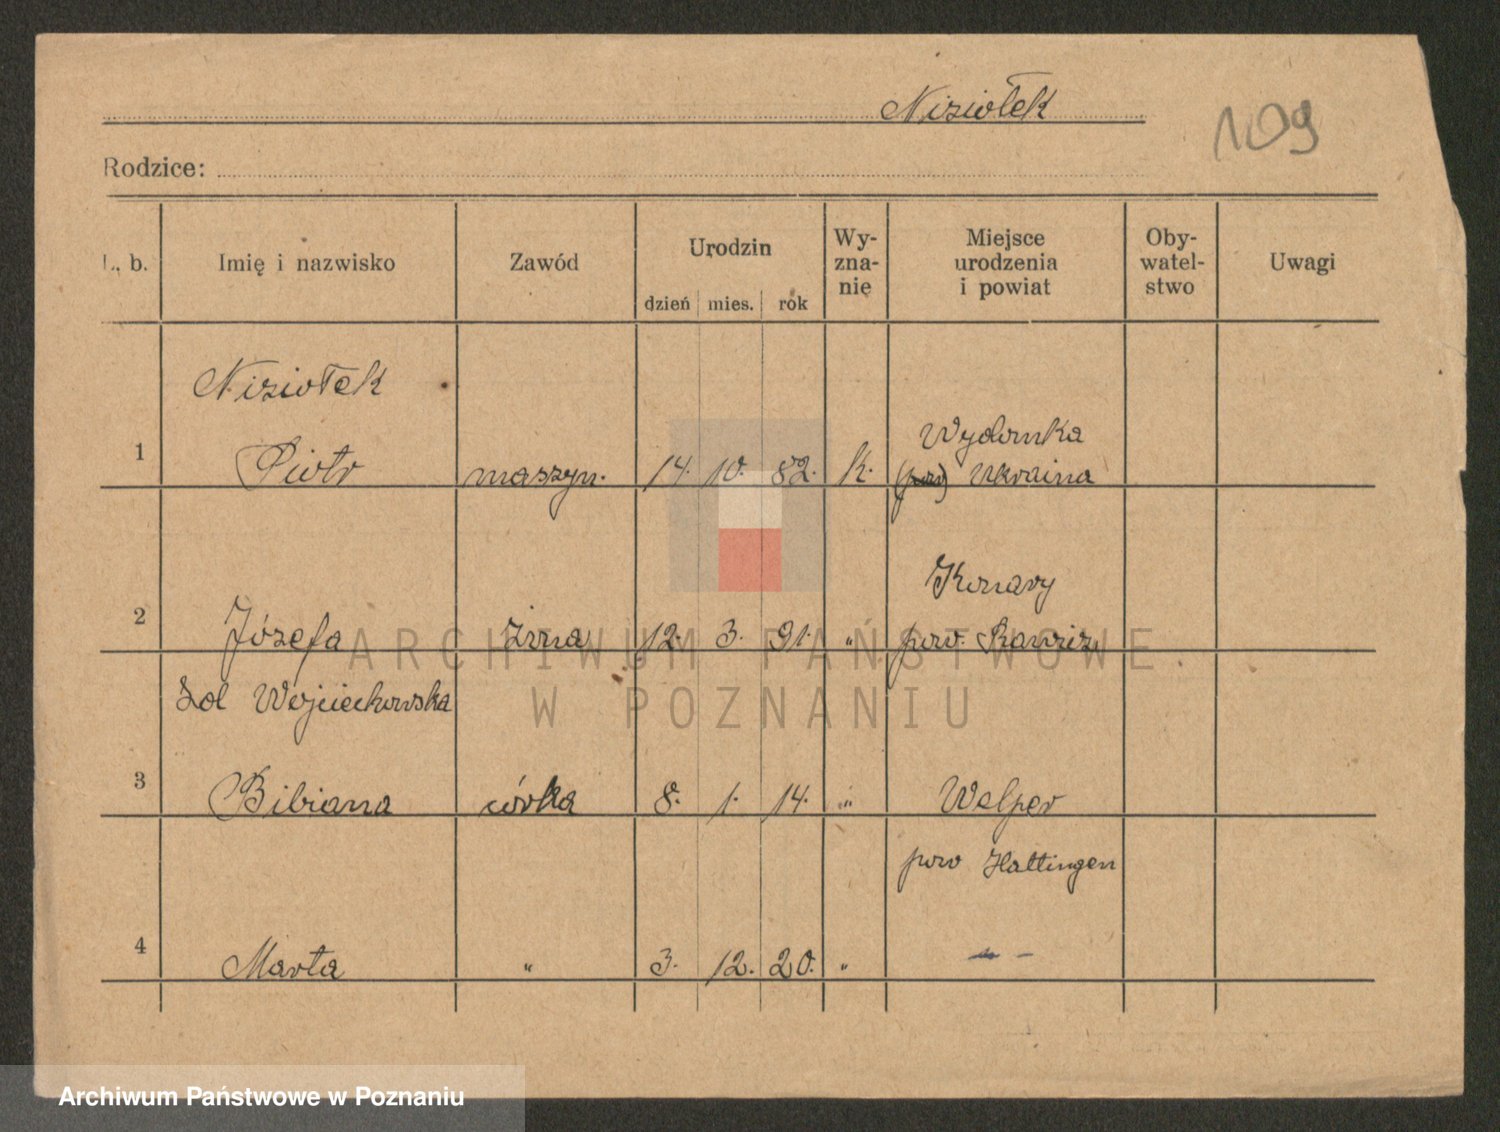 Niziołek
109
Rodzice:
L. b. Imię i nazwisko Zawód Urodzin dzień mies. rok Wy-zna-nie Miejsce urodzenia i powiat Oby-watel-stwo Uwagi
Niziołek
1 Piotr maszyn. 14. 10. 82. k. Wydomka
(pow) Ukraina
Konary
2 Józefa żona 12. 3. 91. " pow. Rawicz
Zol Wojciechowska
3 Bibiana córka 8. 1. 14. " Welper
pow Hattingen
4 Marta " 3. 12. 20. " -"-
ARCHIWUM PAŃSTWOWE
W POZNANIU
Archiwum Państwowe w Poznaniu